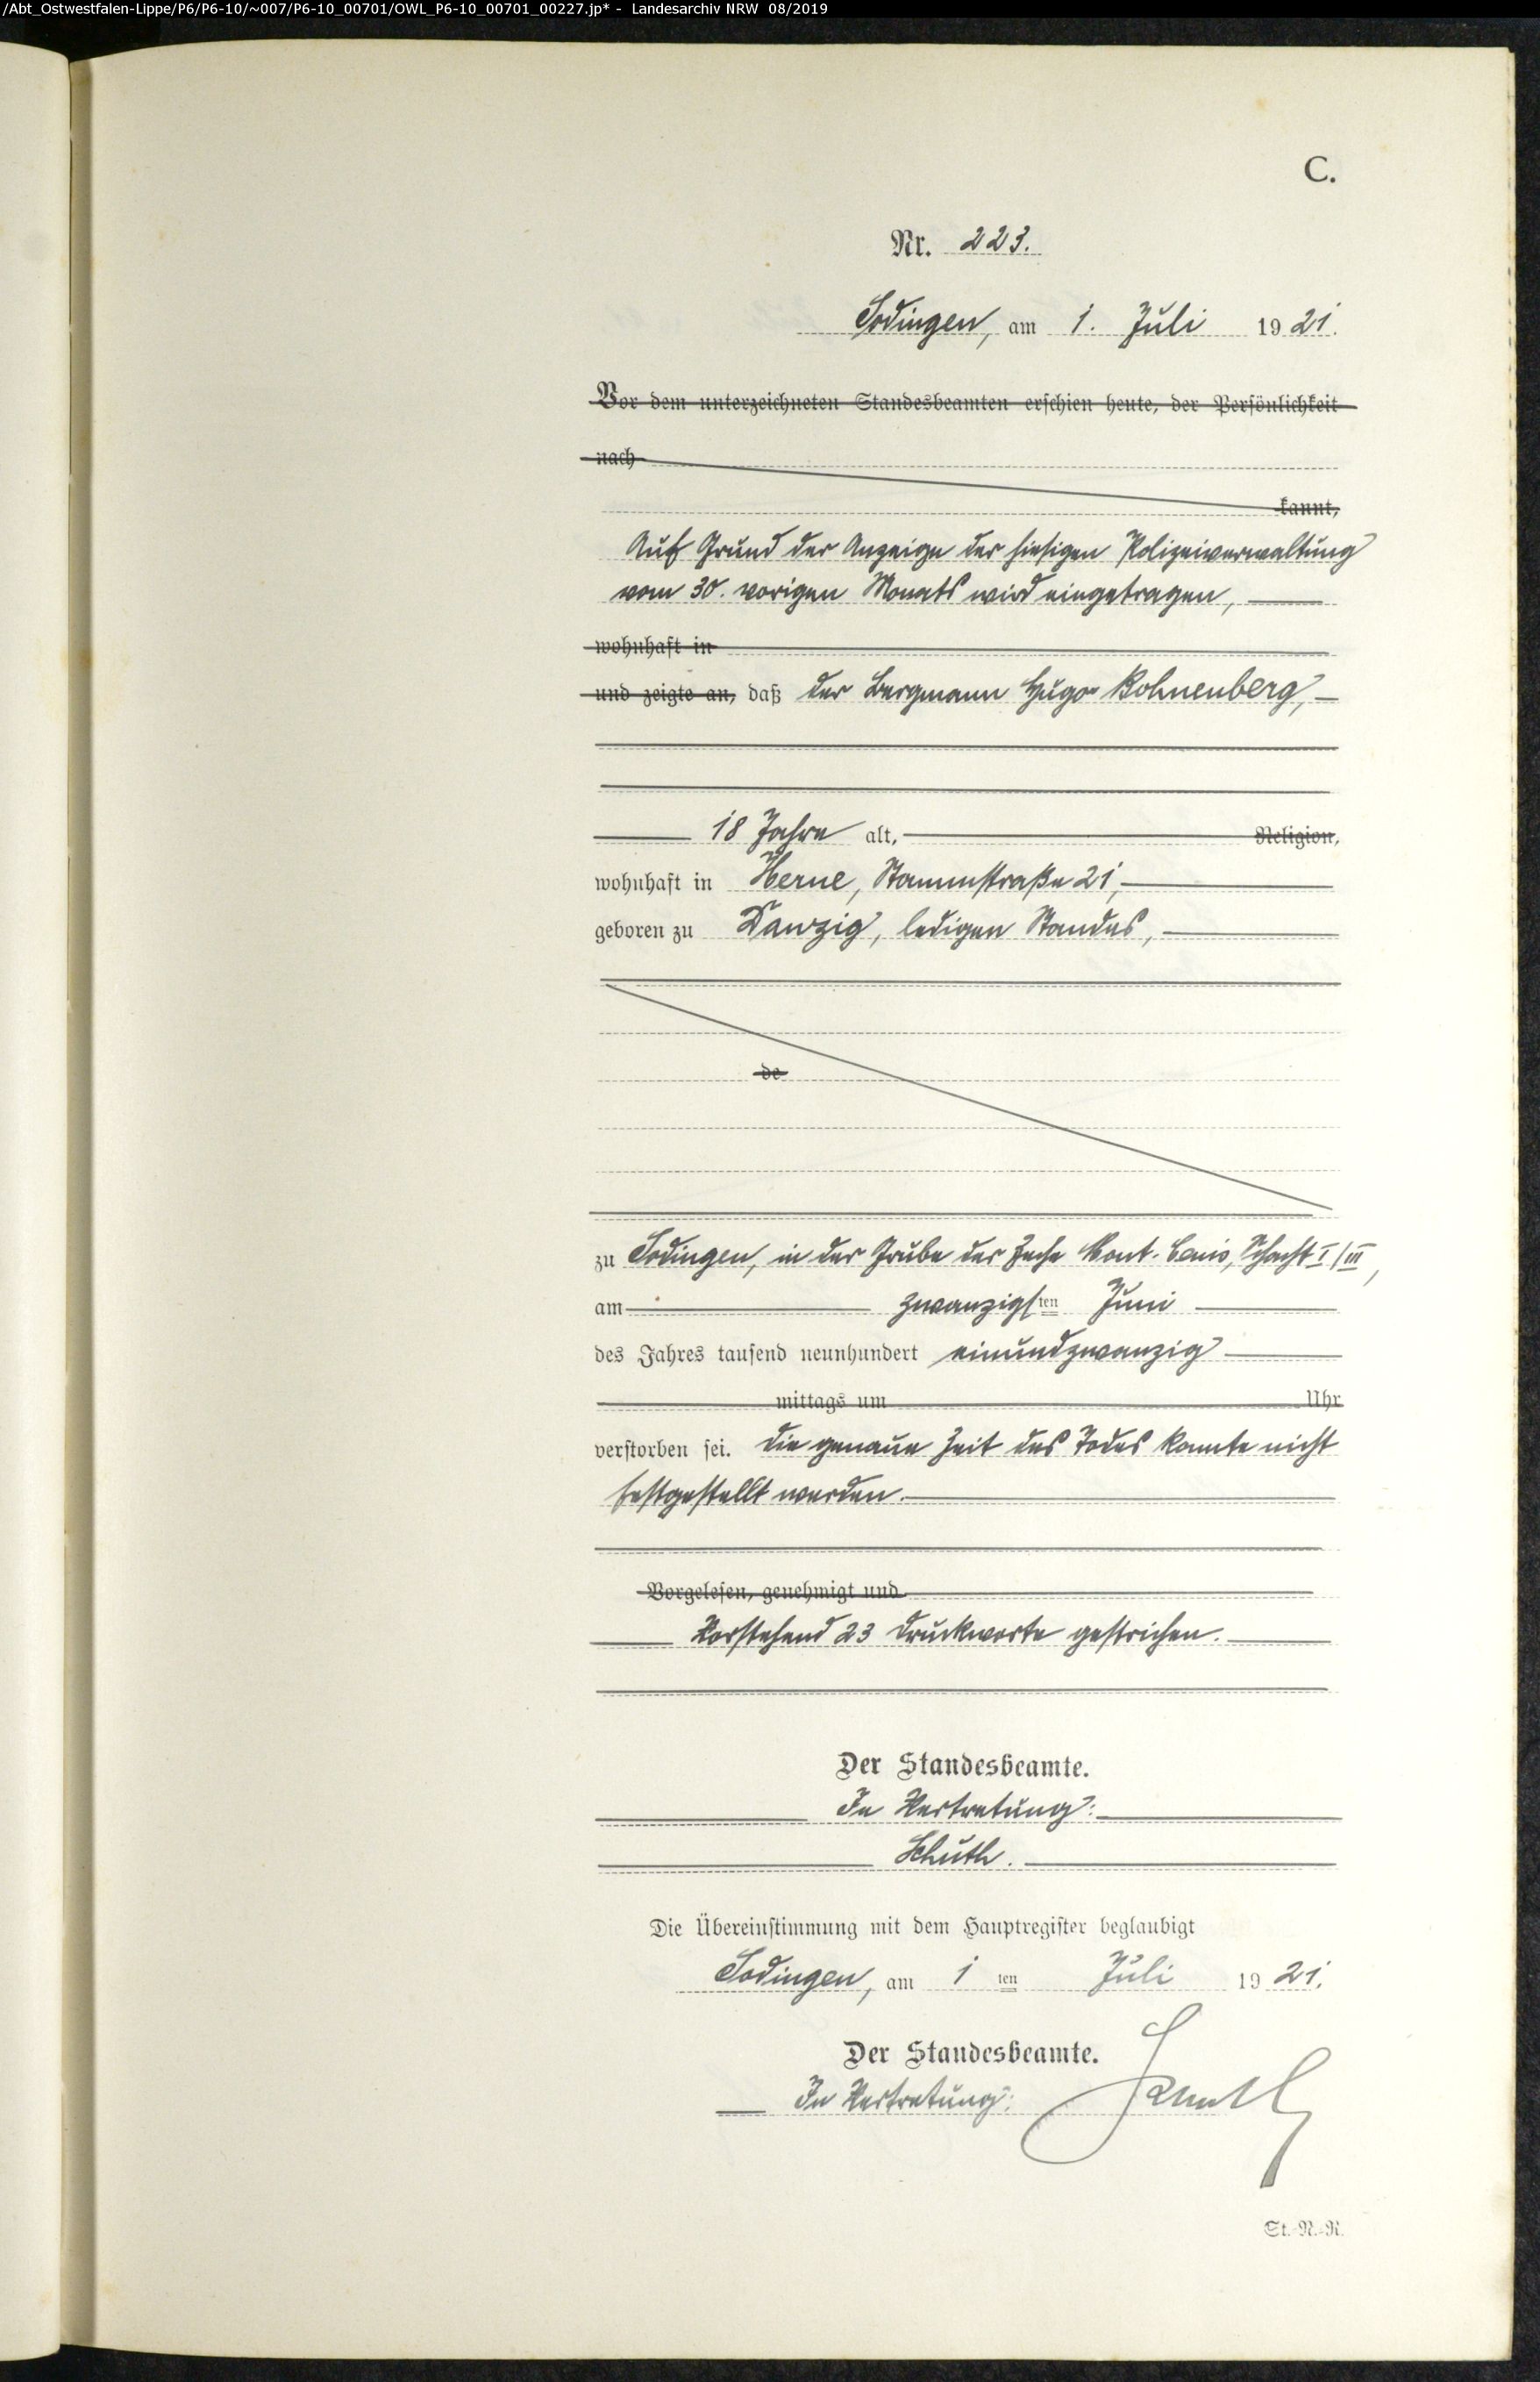 /Abt_Ostwestfalen-Lippe/P6/P6-10/~007/P6-10_00701/OWL_P6-10_00701_00227.jp* - Landesarchiv NRW 08/2019
C.
Nr. 223.
Sodingen, am 1. Juli 1921.
Vor dem unterzeichneten Standesbeamten erschien heute, der Persönlichkeit
nach
kannt,
Auf Grund der Anzeige der hiesigen Polizeiverwaltung
vom 30. vorigen Monats wird eingetragen,
wohnhaft in
und zeigte an, daß der Bergmann Hugo Bohnenberg,
18 Jahre alt, Religion,
wohnhaft in Herne, Stammstraße 21,
geboren zu Danzig, ledigen Standes,
de
zu Sodingen, in der Grube der Zeche Mont-Cenis, Schacht I/III,
am zwanzigsten Juni
des Jahres tausend neunhundert einundzwanzig
mittags um Uhr
verstorben sei. Die genaue Zeit des Todes konnte nicht
festgestellt werden.
Vorgelesen, genehmigt und
Vorstehend 23 Druckworte gestrichen.
Der Standesbeamte.
In Vertretung:
Schuth.
Die Übereinstimmung mit dem Hauptregister beglaubigt
Sodingen, am 1 ten Juli 1921.
Der Standesbeamte.
In Vertretung: Schuth
St.-N.-R.